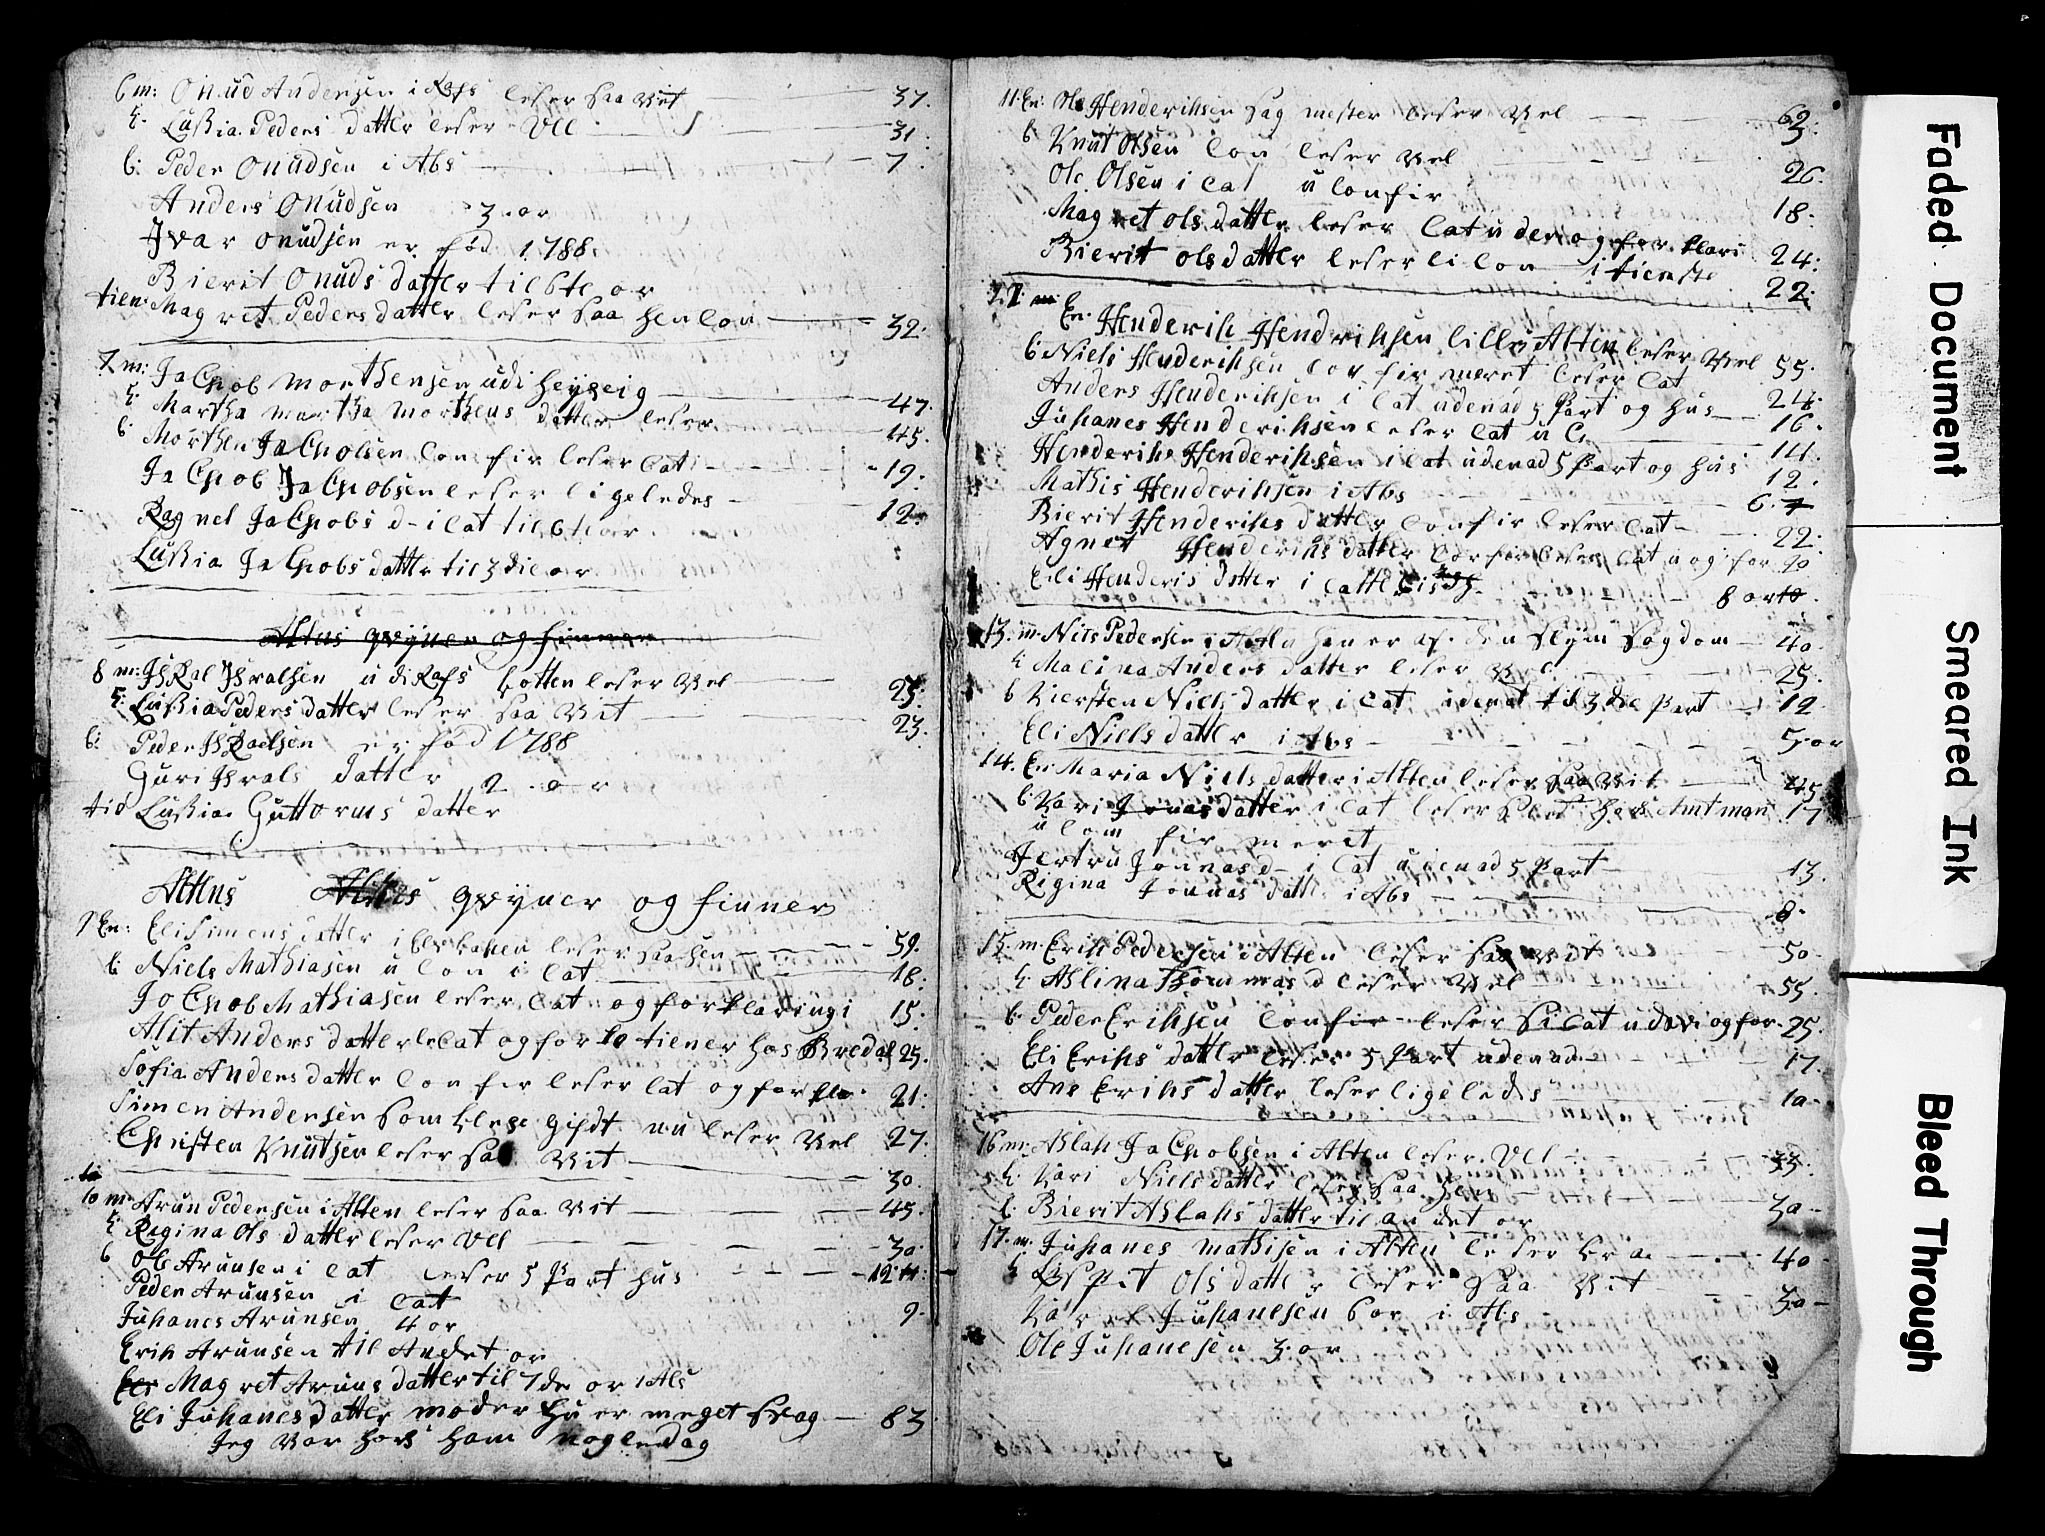 6 m: Onud Andersen i Rafs leser saa vit 37.
k. Lussia Peders datter leser Vel 31.
b: Peder Onudsen i Abs 7.
Anders Onudsen 3 or
Jvar Onudsen er fød 1788.
Bierit Onuds datter til 6te or
tien: Magret Peders datter leser saa hen con 32.
7 m: Jachob Morthensen udi 47.
k. Martha Morthens datter leser 45.
b Morthen Jachobsen con fir leser Cat 19.
Jachob Jachobsen leser ligeledes 12.
Ragnel Jachobs d i Cat til 6ti or
Lussia Jachobs datter til 3die or
Altens qvæner og finner
8 m: Jsral Jsralsen udi Rafs botten leser vel 25.
k: Lussia Peders datter leser saa vit 23.
b: Peder Jsraelsen er fød 1788
Guri Jsrals datter 2 or
tid Lussia Guttorms datter
Altens Altens qvyner og finner
9 En: Eli Simens datter i leser saa hen 59.
b Niels Mathiasen u con i Cat 18:
Jochob Mathiasen leser Cat og forklaringi 15.
Alit Anders datter Cat og for tiener hos Bredal 25.
Sofia Anders datter con fir leser Cat og forkla 21:
Simen Andersen som gift nu leser vel 27.
Christen Knutsen leser saa vit 30.
10 m: Arun Pedersen i Alten leser saa vit 45.
k Regina Ols datter leser Vel 30
b Ole Arunsen i Cat leser 5 Part hus 12
Peder Arunsen i Cat
Juhanes Arunsen 4 or 9.
Erik Arunsen til Andet or
Magret Aruns datter til 7de or i Abs
Eli Juhanes datter moder hu er meget svag 83
Jeg var hos ham nogle dag
11. En: Ole Henderiksen sag mester leser vel 62.
b Knut Olsen con leser vel
Ole Olsen i Cat u confir 26.
Magret ols datter leser Cat uden og for klari 18.
Bierit ols datter leser con i tieneste 24.
22.
12 m En. Henderik Hendriksen lille Alten leser vel 55.
b Niels Henderiksen con fir meret leser Cat 24.
Anders Henderiksen i Cat udenad 5 Part og hus 16.
Juhanes Henderiksen leser Cat u 14.
Henderik Henderiksen i Cat udenad 5 Part og hus 12.
Mathis Henderiksen i Abs 6.
Bierit Henderiks datter confir leser Cat 22.
Agnet Henderiks datter confir leser Cat u og for 20
Eli Henderis datter i Catte 8 or
13. m. Nils Pedersen i Alten han er af den sagdom 40.
k Malina Anders datter leser vel 25.
b Kiersten Niels datter i Cat udenat til 3die Part 12
Eli Niels datter i Abs 5 or
14. En: Maria Niels datter i Alten leser saa vit 45
b. Kari Jonas datter i Cat leser hos Amtman 17
u com fir meret
Jertru Jonnas d i Cat udenad 5 Part 13.
Rigina Jonnas datter i Abs 8.
15. m. Erik Pedersen i Alten leser saa vit 50
k. Aslina Thommas d leser vel 55.
b. Peder Eriksen confir leser Cat uden og for 25.
Eli Eriks datter leser 5 Part udenad 17.
Ane Eriks datter leser ligeledes 10
16 m: Aslak Jachobsen i Alten leser Vel 33.
k. Kari Niels datter leser saa hen 30
b. Bierit Aslaks datter til andet or
17. m. Juhanes Mathisen i Alten leser bra 40
k Espet Ols datter leser saa vit 30
Juhanesen 6 or i Abs
Ole Juhanesen 3 or
Faded Document
Smeared Ink
Bleed Through